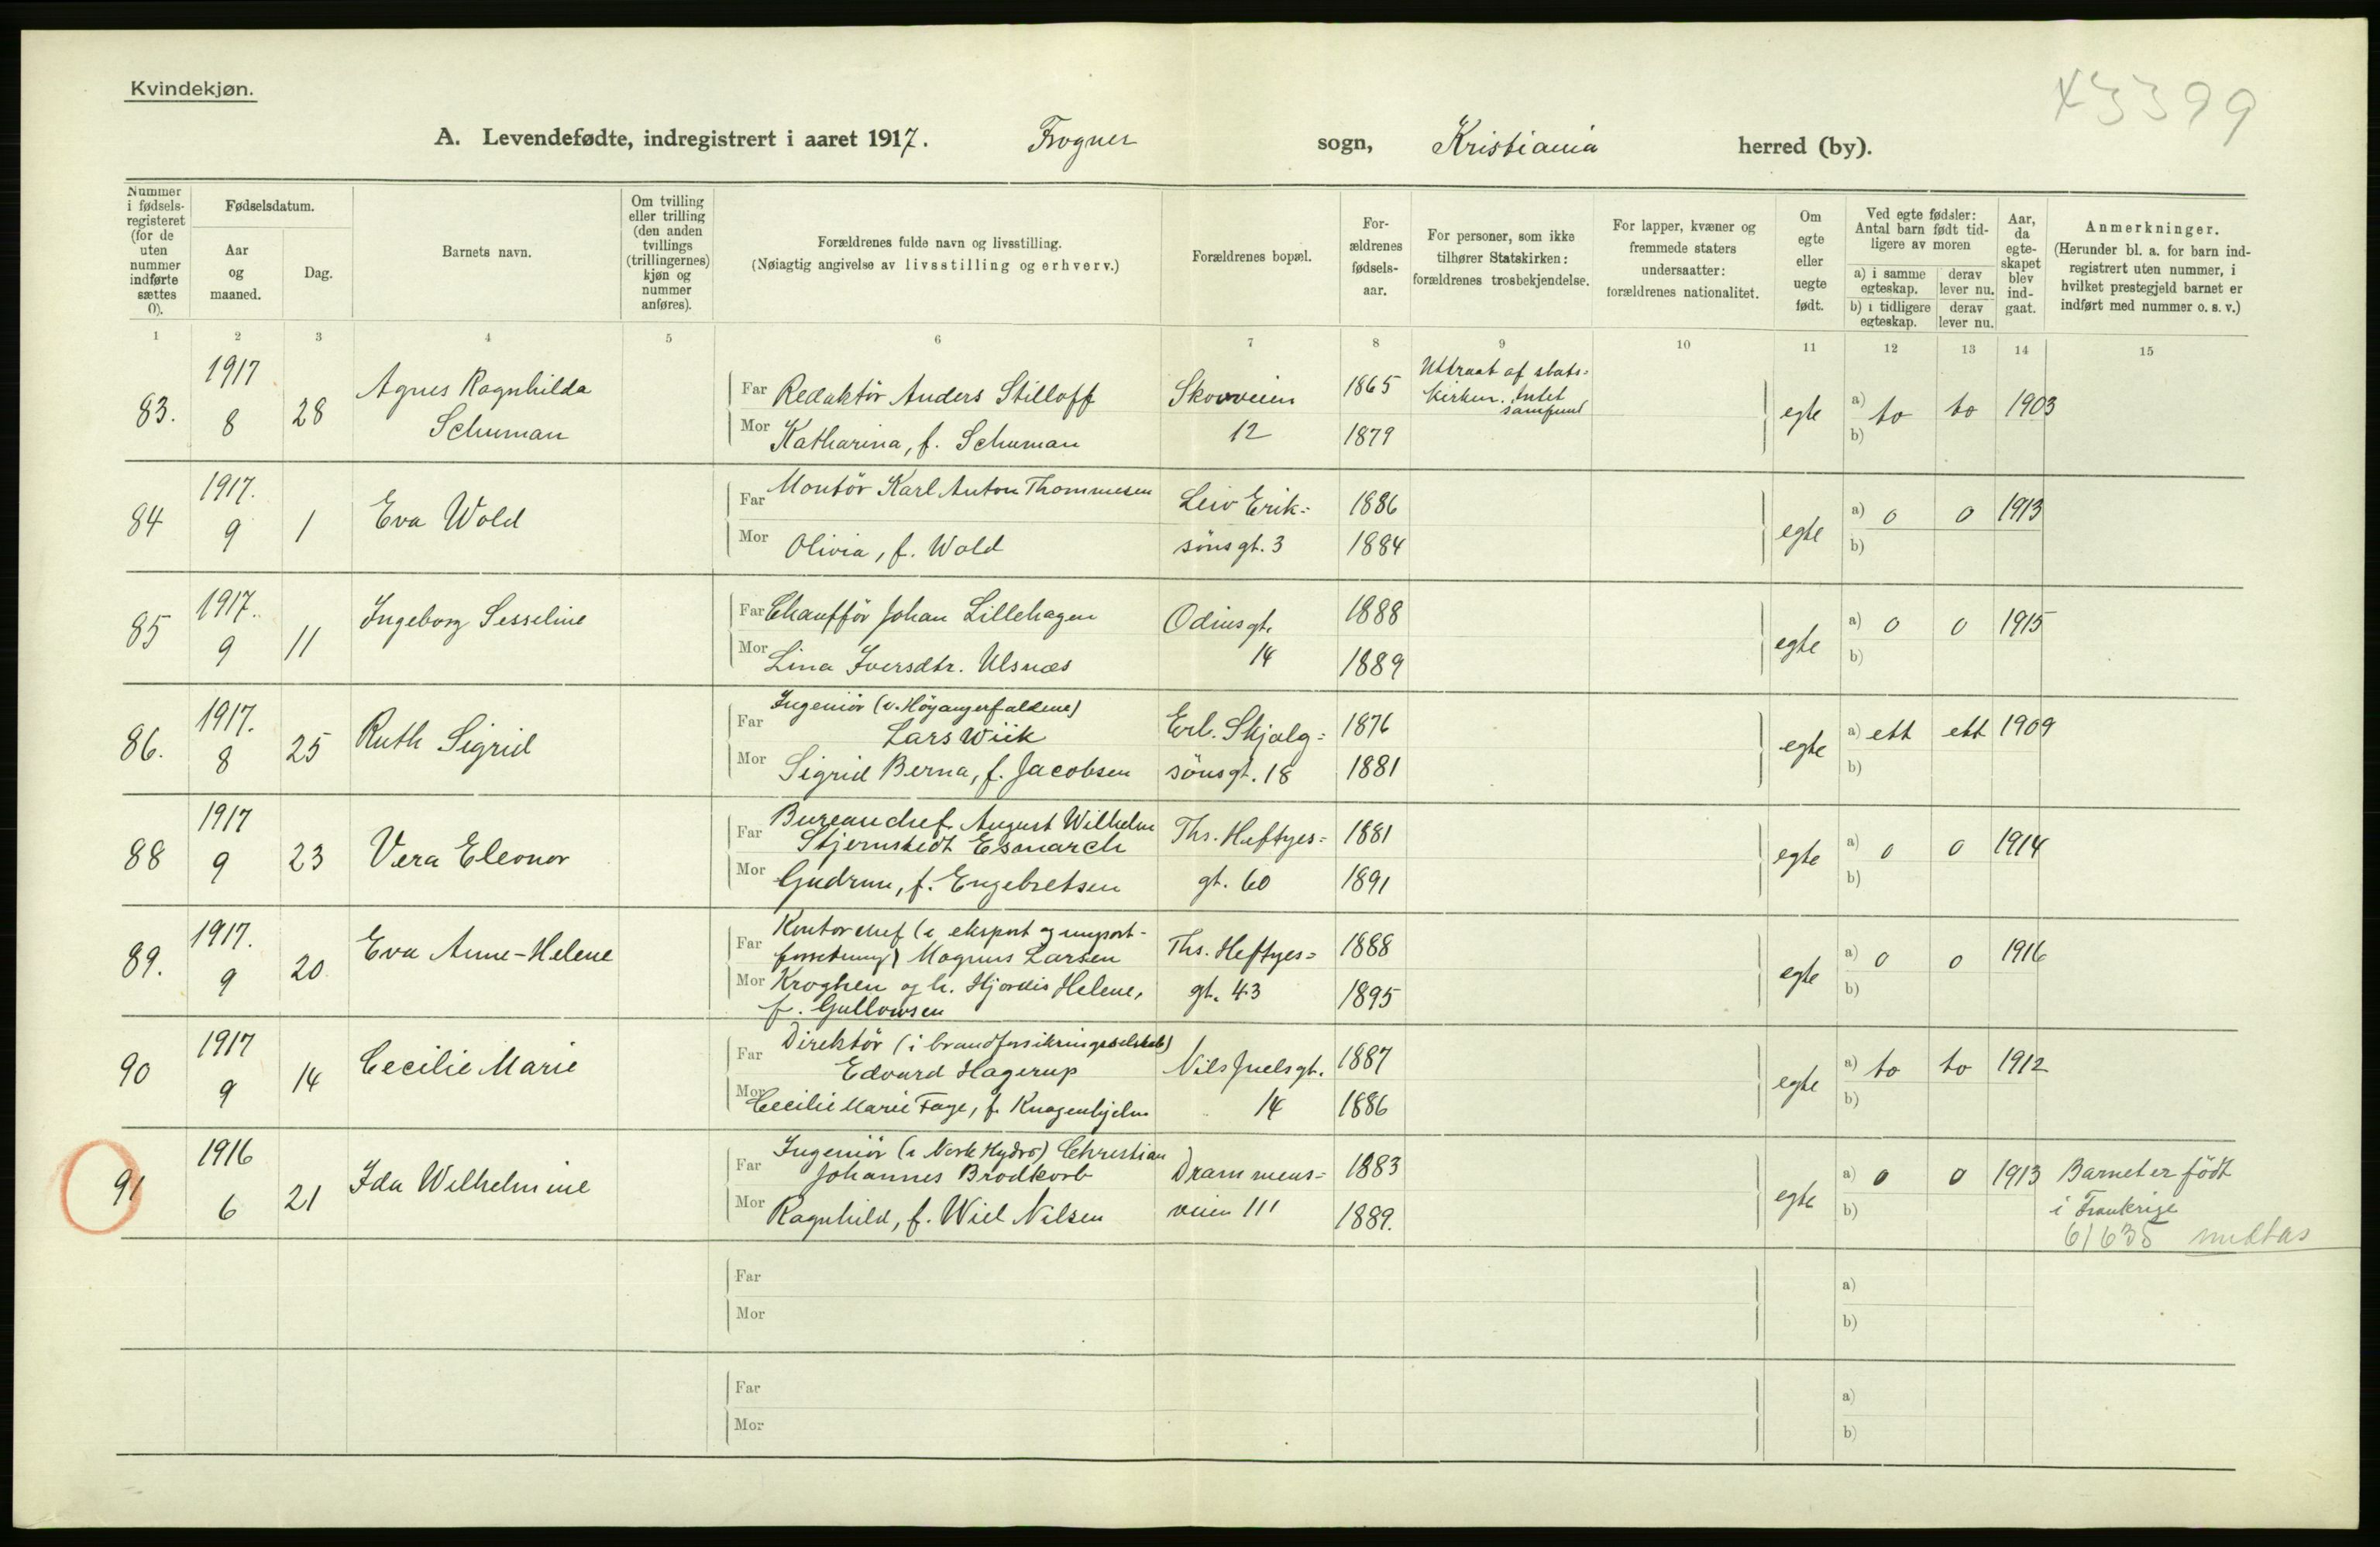 Kvindekjøn.
A. Levendefødte, indregistrert i aaret 1917. Frogner sogn, Kristiania herred (by).
Nummer i fødsels-registeret (for de uten nummer indførte sættes 0).
Fødselsdatum.
Aar og maaned.
Dag.
Barnets navn.
Om tvilling eller trilling (den anden tvillings (trillingernes) kjøn og nummer anføres).
Forældrenes fulde navn og livsstilling.
(Nøiagtig angivelse av livsstilling og erhverv.)
Forældrenes bopæl.
For-ældrenes fødsels-aar.
For personer, som ikke tilhører Statskirken: forældrenes trosbekjendelse.
For lapper, kvæner og fremmede staters undersaatter: forældrenes nationalitet.
Om egte eller uegte født.
Ved egte fødsler: Antal barn født tid-ligere av moren
a) i samme egteskap.
derav lever nu.
b) i tidligere egteskap.
derav lever nu.
Aar, da egte-skapet blev ind-gaat.
Anmerkninger.
(Herunder bl. a. for barn ind-registrert uten nummer, i hvilket prestegjeld barnet er indført med nummer o. s. v.)
1 2 3 4 5 6 7 8 9 10 11 12 13 14 15
83. 1917 8 28 Agnes Ragnhilda Schuman
Far Redaktör Anders Stilloff Skovveien 1865 Uttraat af stats-kirken. Intet samfund
Mor Katharina, f. Schuman 12 1879
egte a) to to 1903
b)
84 1917. 9 1 Eva Wold
Far Montör Karl Anton Thommesen Leiv Erik- 1886
Mor Olivia, f. Wold sönsgt. 3 1884
egte a) 0 0 1913
b)
85 1917. 9 11 Ingeborg Sesseline
Far Chaufför Johan Lillehagen Odinsgt. 1888
Mor Lina Iversdtr. Ulsnæs 14 1889
egte a) 0 0 1915
b)
86. 1917. 8 25 Ruth Sigrid
Far Ingeniör (v. Höyangerfaldene) Lars Wiik Erl. Skjalg- 1876
Mor Sigrid Berna, f. Jacobsen sönsgt. 18 1881
egte a) ett ett 1909
b)
88 1917 9 23 Vera Eleonor
Far Bureauchef August Wilhelm Stjernstedt Esmarch Ths. Heftyes- 1881
Mor Gudrun, f. Engebretsen gt. 60 1891
egte a) 0 0 1914
b)
89. 1917. 9 20 Eva Anne-Helene
Far Kontorchef (i eksport og import-forretning) Magnus Larsen Ths. Heftyes- 1888
Mor Kroghen og h. Hjordis Helene, f. Gullowsen gt. 43 1895
egte a) 0 0 1916
b)
90 1917 9 14 Cecilie Marie
Far Direktör (i brandforsikringsselskab) Edvard Hagerup Nils Juelsgt. 1887
Mor Cecilie Marie Faye, f. Knagenhjelm 14 1886
egte a) to to 1912
b)
91 1916 6 21 Ida Wilhelmine
Far Ingeniör (i Norsk Hydro) Christian Johannes Brodkorb Drammens- 1883
Mor Ragnhild, f. Wiel Nilsen veien 111 1889.
egte a) 0 0 1913 Barnet er född
b) i Frankrige
61635
Far a)
Mor b)
Far a)
Mor b)